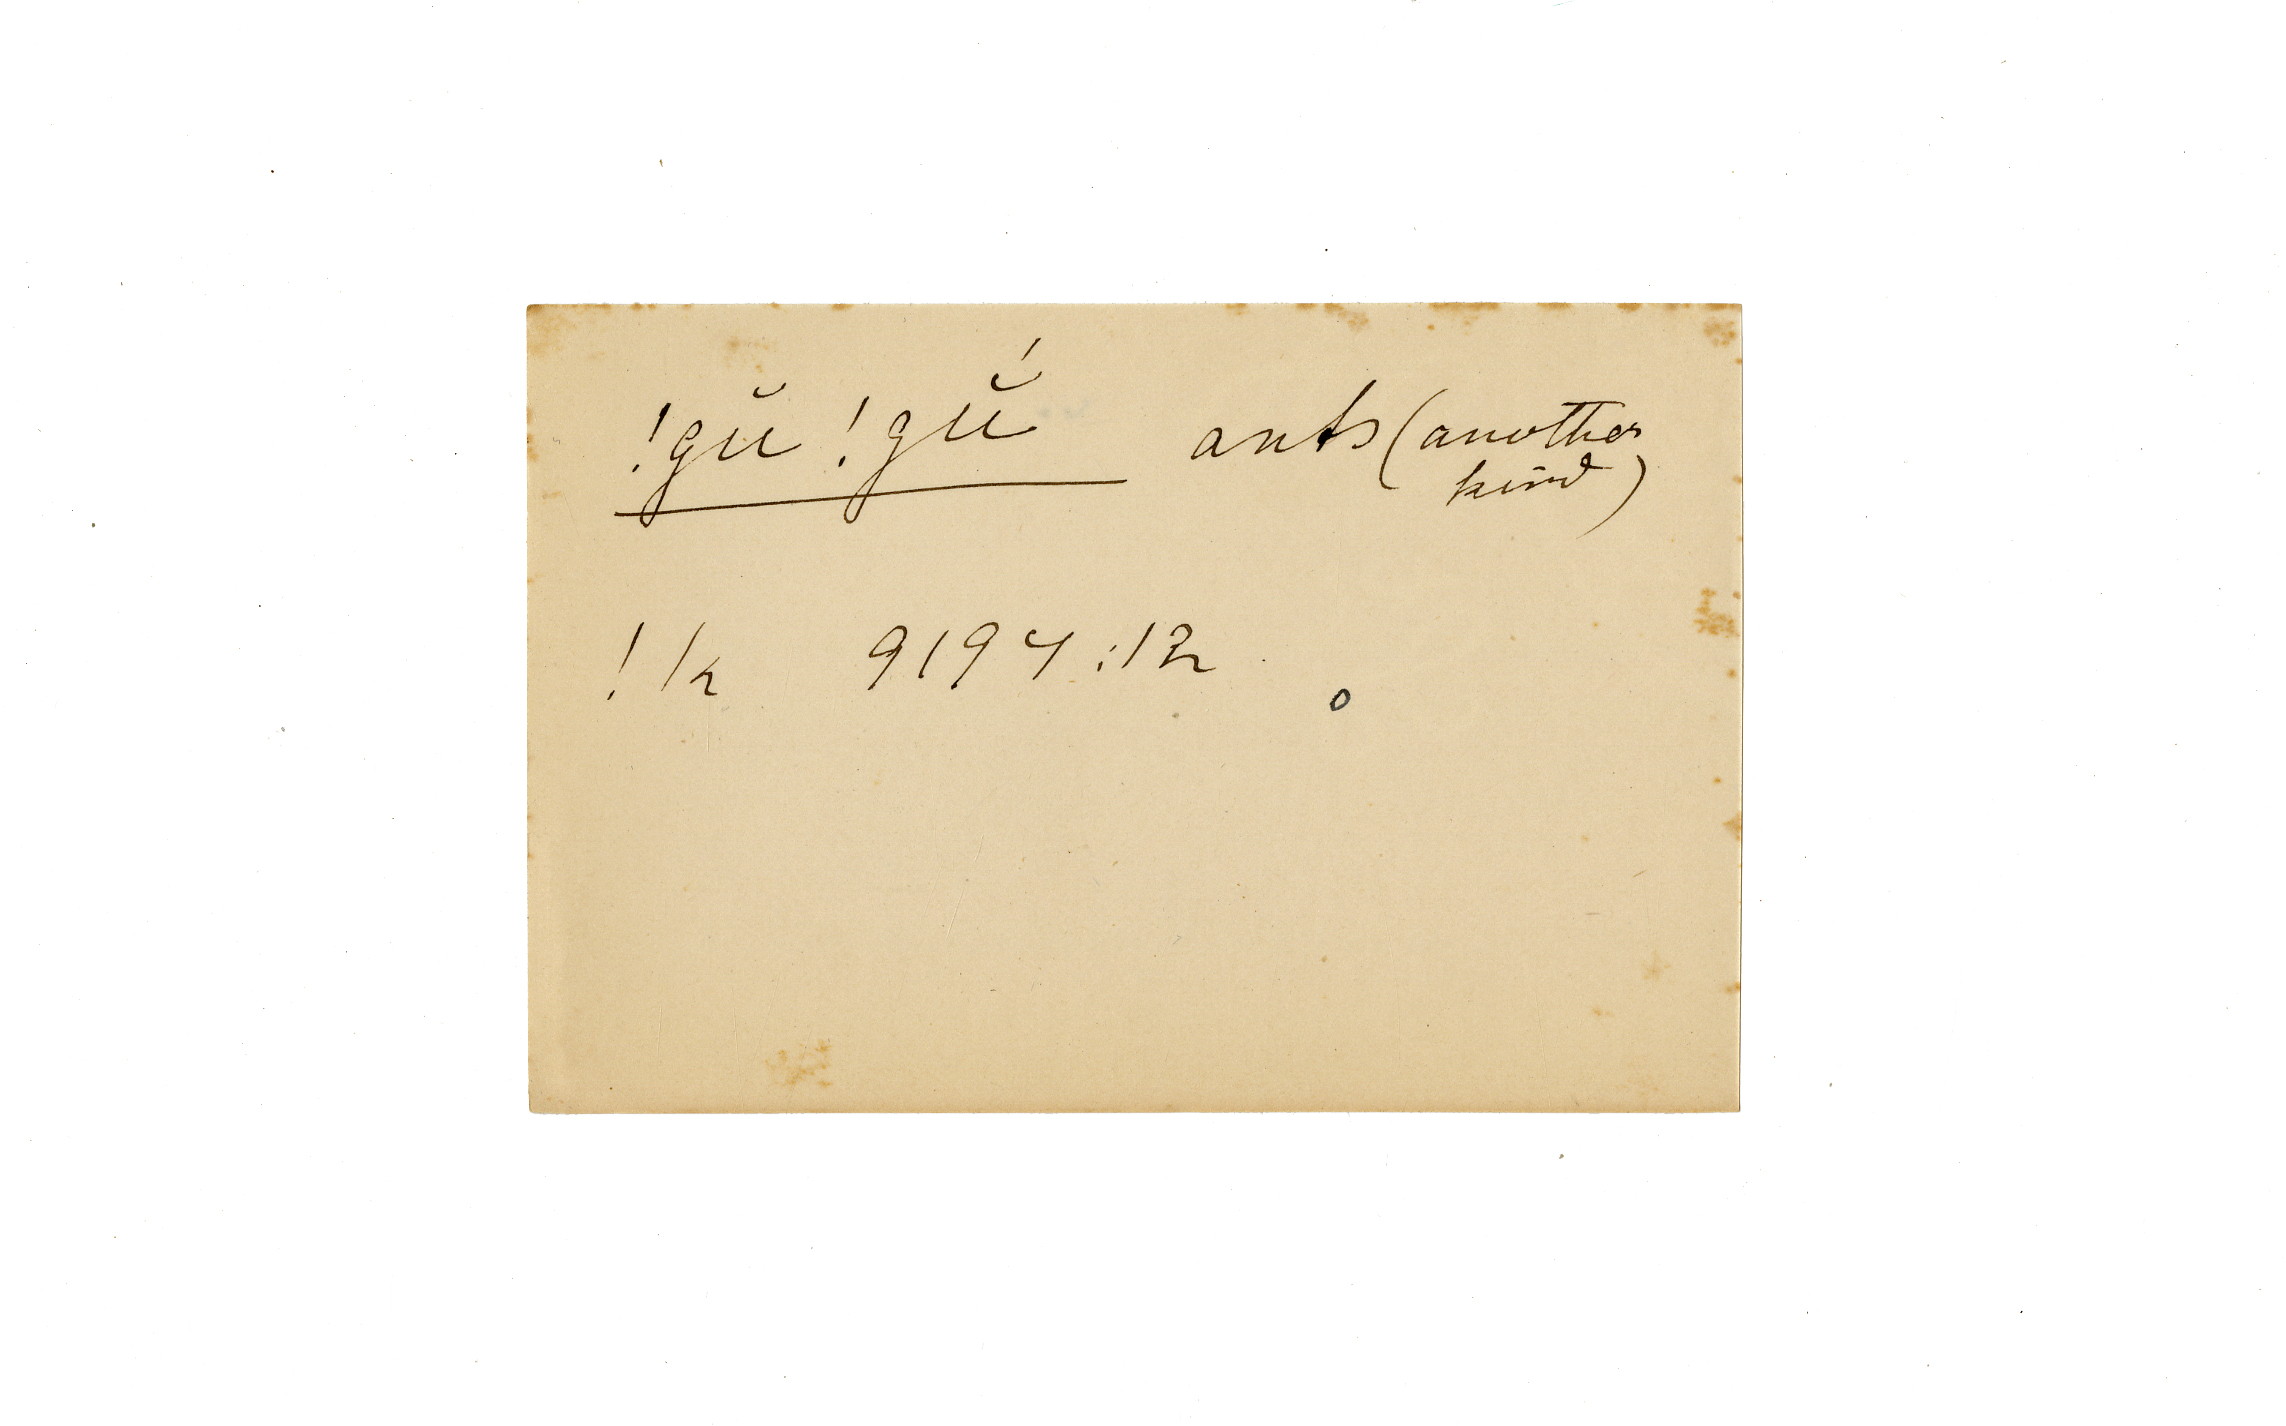 !gŭ !gŭ́ ants (another
kind)
!k 9194:12 o